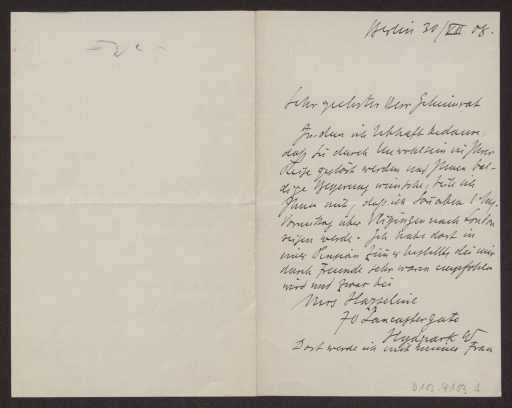 Berlin 30/VII 08.
Sehr geehrter Herr Geheimrat
Indem ich lebhaft bedaure,
daß Sie durch Unwohlsein in Ihrer
Reise gestört werden und Ihnen bal-
dige wünsche, teile ich
Ihnen mit, daß ich 1. Aug.
Vormittag über Vlissingen nach London
reisen werde. Ich habe dort in
einer Pension Zimmer bestellt, die mir
durch Freunde sehr warm empfohlen
wird und zwar bei
Mrs Hazseline
70 Lancastergate
Hydpark W
Dort werde ich mit meiner Frau